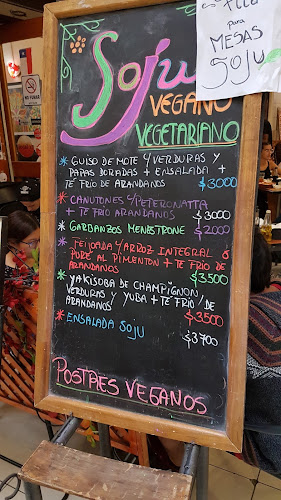 para
MESAS
SOJU
Soju
VEGANO
VEGETARIANO
* GUISO DE MOTE Y/VERDURAS Y
PAPAS DORADAS + ENSALADA +
TE FRIO DE ARANDANOS $3000
* CANUTONES Y/PEPERONATTA
+ TE FRIO ARANDANOS $3000
* GARBANZOS MENESTRONE $2000
* FEIJOADA Y/ARROZ INTEGRAL O
PURÉ AL PIMENTON + TE FRIO DE
ARANDANOS $3500
* YAKISOBA DE CHAMPIGNON,
VERDURAS Y YUBA + TE FRIO/DE
ARANDANOS $3500
* ENSALADA SOJU $3700
POSTRES VEGANOS